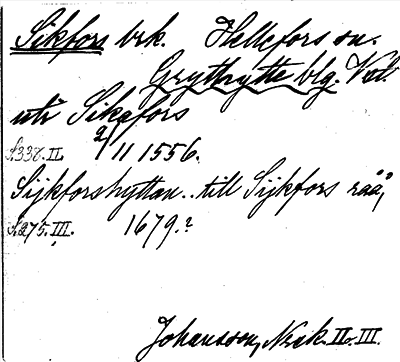 Sikfors brk. Hellefors sn.
Grythytte blg. Vstl.
uti Sikafors
S.338. II. 2/11 1556.
Sijkforshyttan.. till Sijkfors råå,
S.275. III. 1679.?
Johansson, Norik. II o. III.